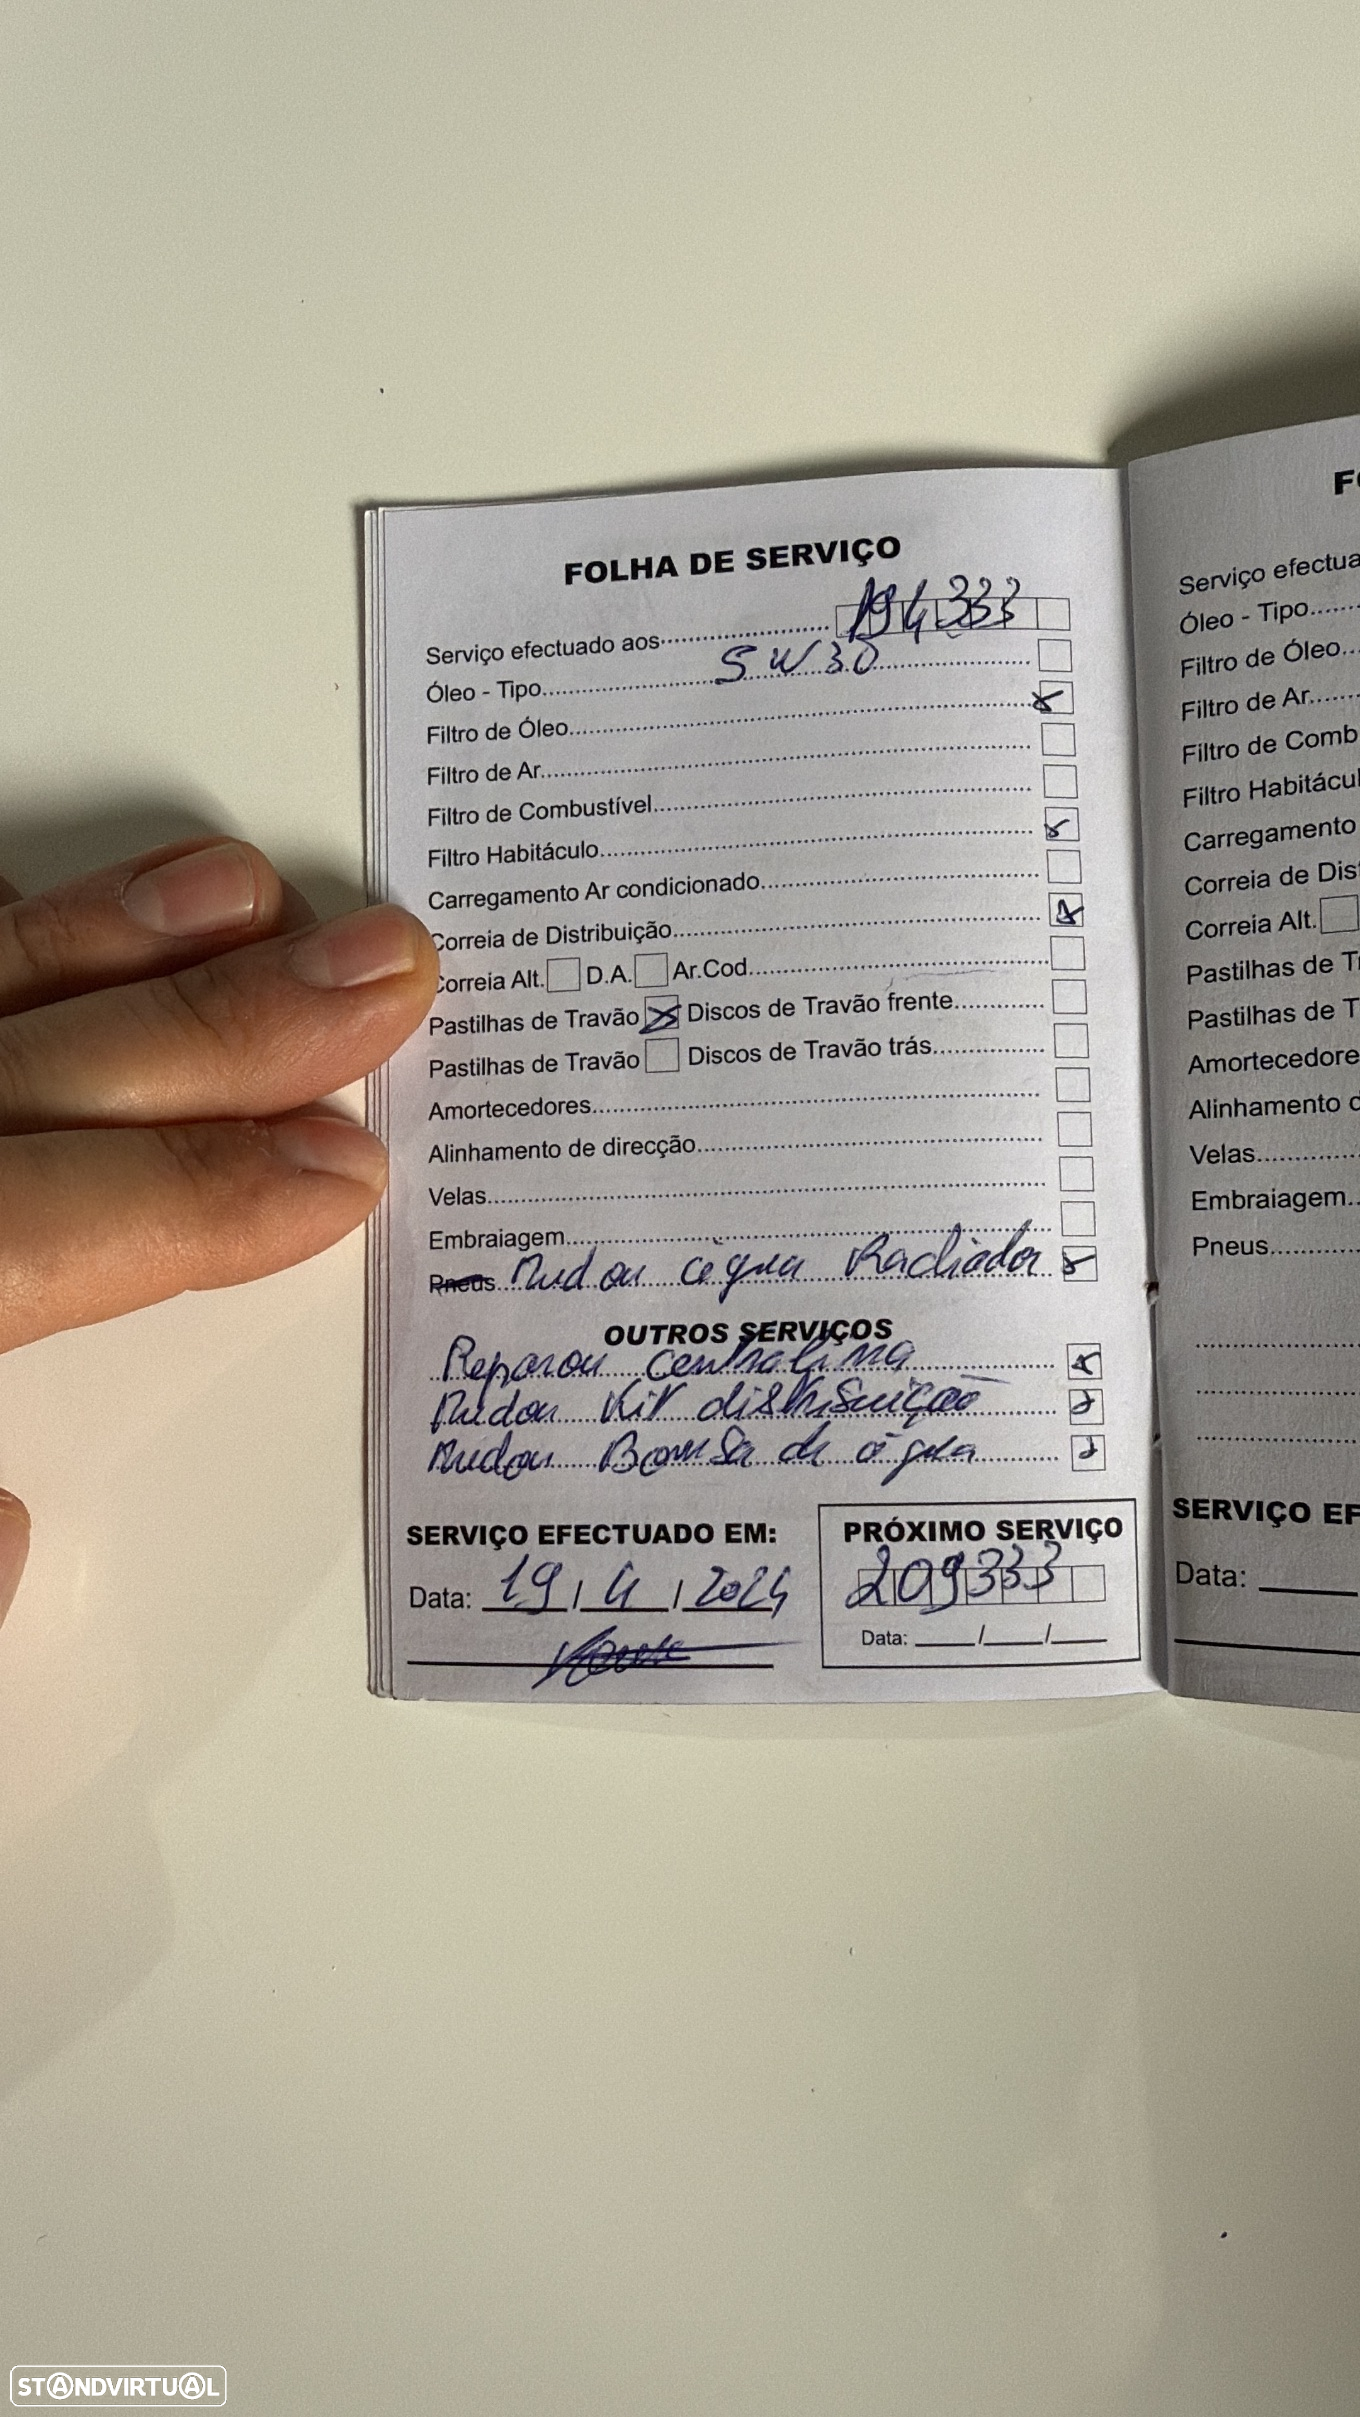 FOLHA DE SERVIÇO
Serviço efectuado aos 194333
Óleo - Tipo 5W30
Filtro de Óleo
Filtro de Ar
Filtro de Combustível
Filtro Habitáculo
Carregamento Ar condicionado
Correia de Distribuição
Correia Alt. D.A. Ar.Cod
Pastilhas de Travão Discos de Travão frente
Pastilhas de Travão Discos de Travão trás
Amortecedores
Alinhamento de direcção
Velas
Embraiagem
Pneus Mudou água Radiador
OUTROS SERVIÇOS
Reparou centralina
Mudou Kit distribuição
Mudou Bomba de água
SERVIÇO EFECTUADO EM:
Data: 19/4/2024
PRÓXIMO SERVIÇO
209333
Data: / /
F
Serviço efectua
Óleo - Tipo
Filtro de Óleo
Filtro de Ar
Filtro de Comb
Filtro Habitácul
Carregamento
Correia de Dist
Correia Alt.
Pastilhas de T
Pastilhas de T
Amortecedore
Alinhamento d
Velas
Embraiagem
Pneus
SERVIÇO EF
Data:
STANDVIRTUAL